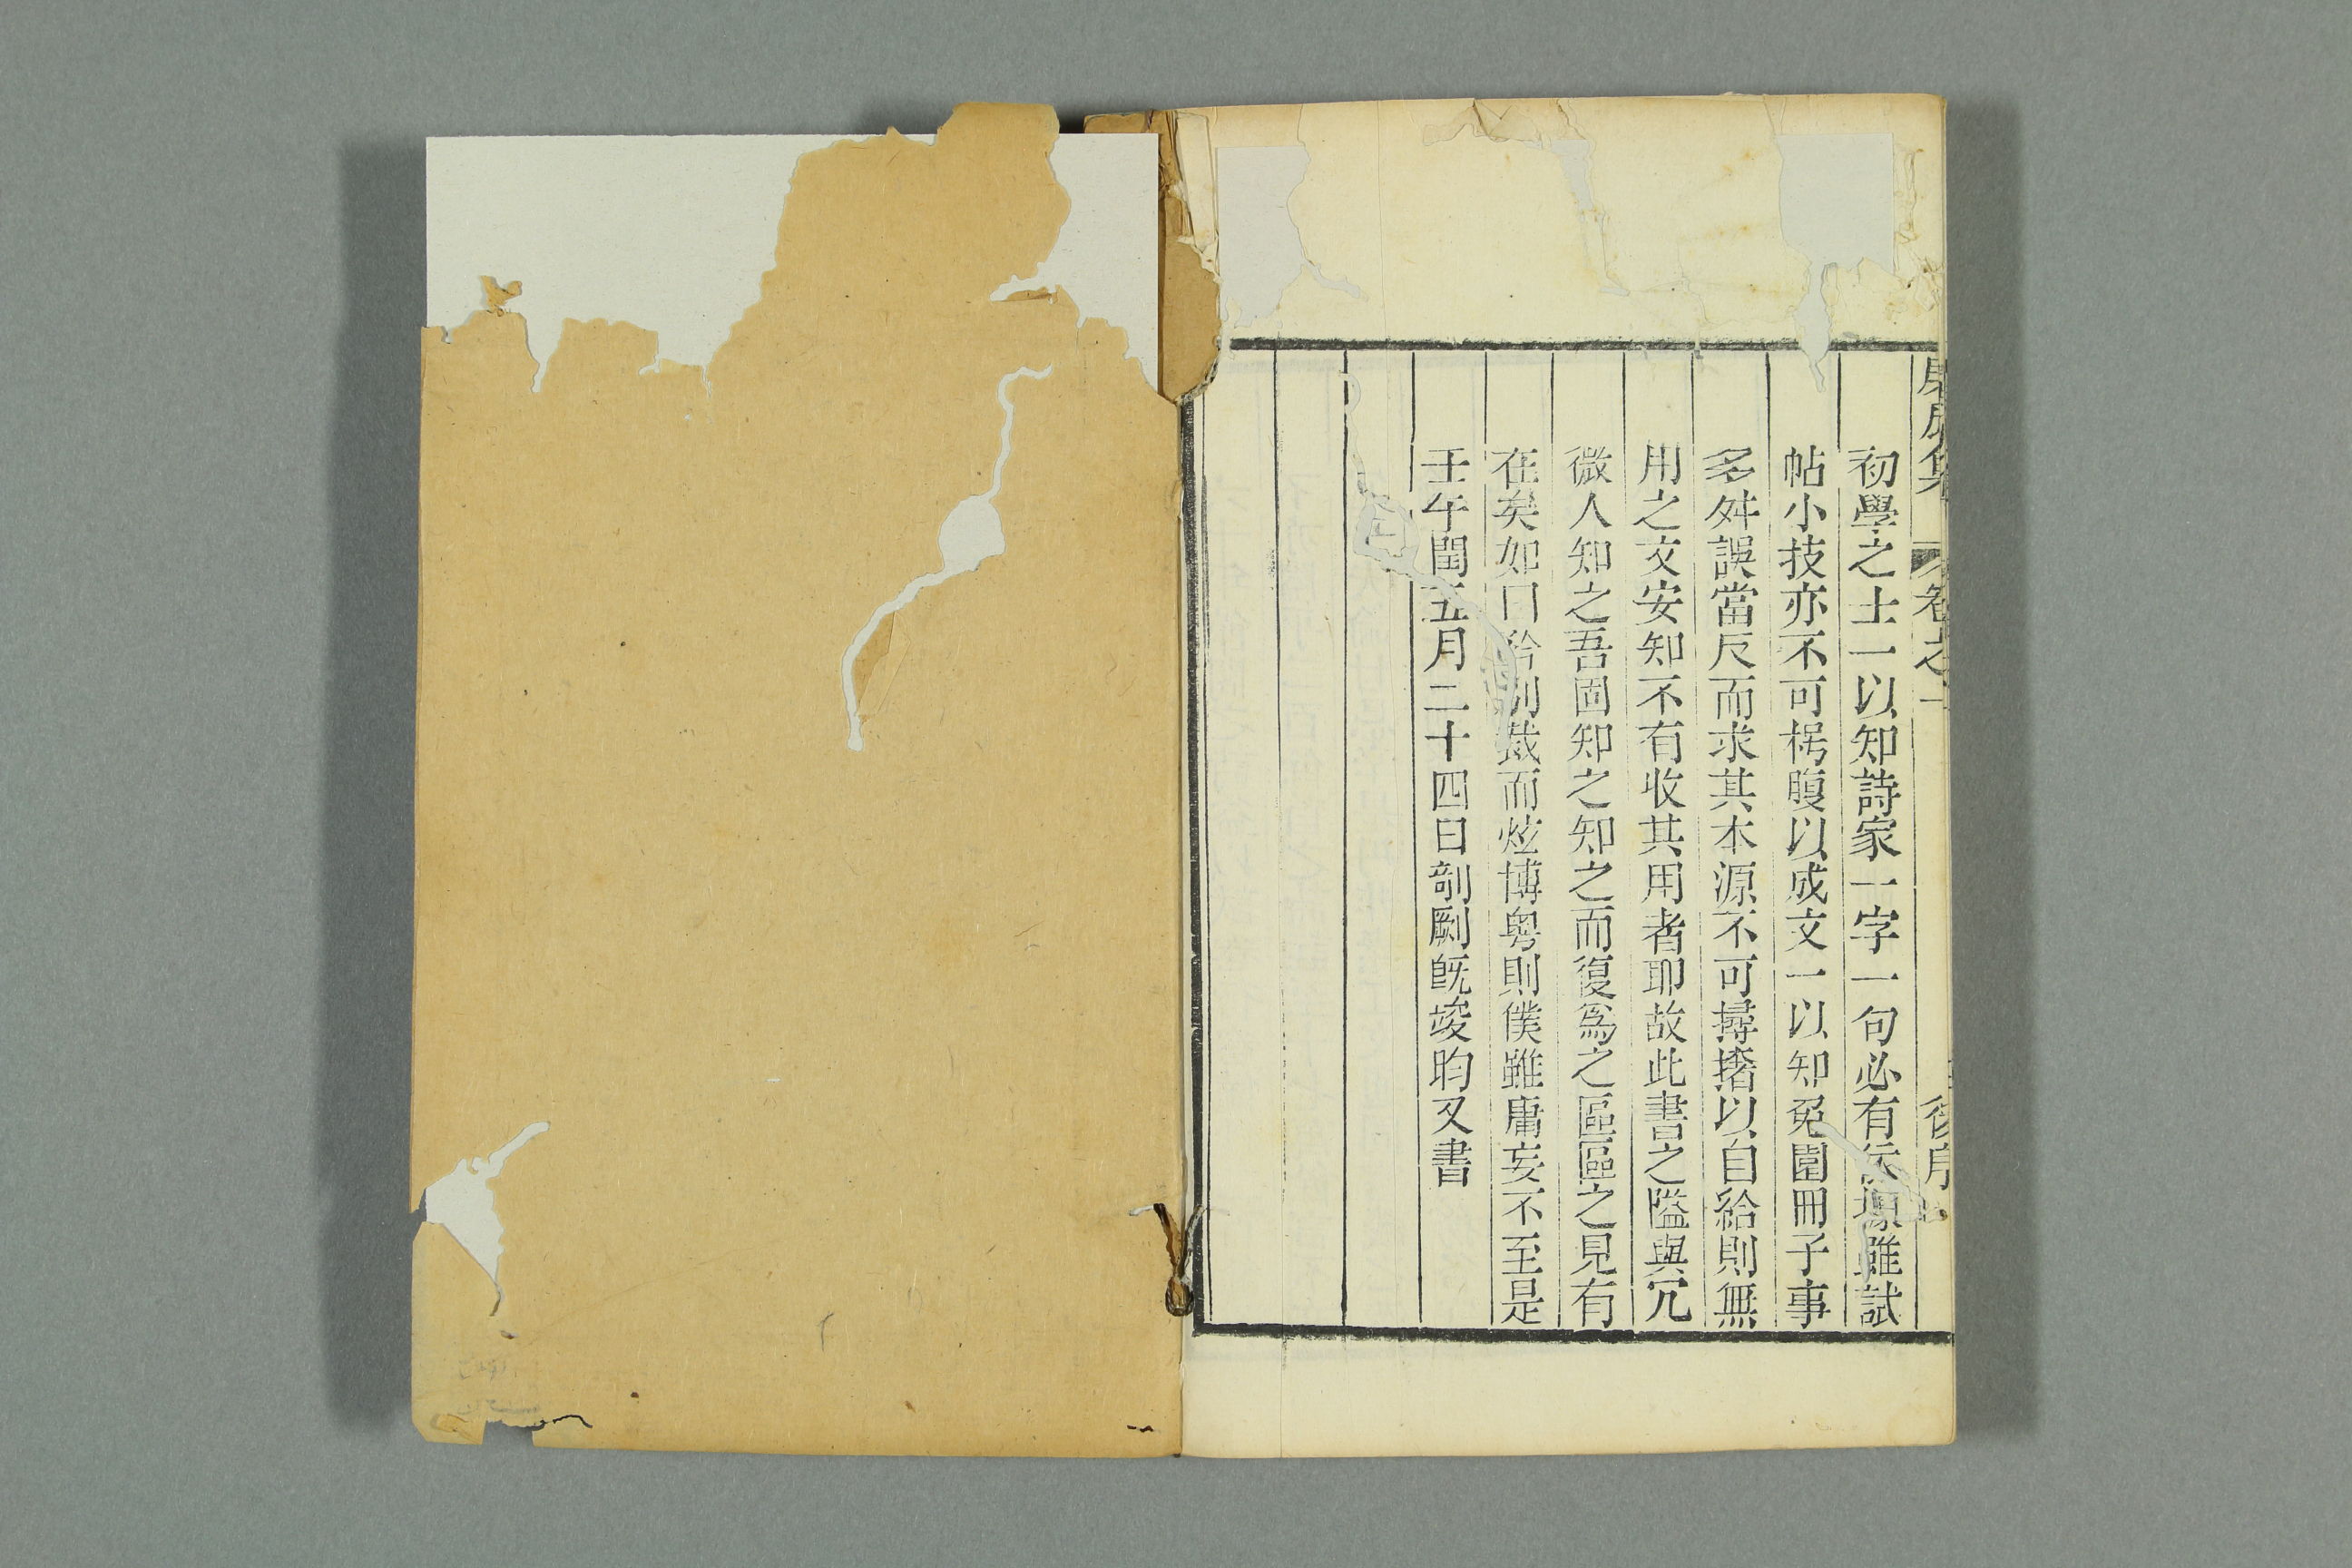 初學之士一以知詩家一字一句必有依據雖試
帖小技亦不可枵腹以成文一以知兔園冊子事
多舛誤當反而求其本源不可撏撦以自給則無
用之文安知不有收其用者耶故此書之隘與冗
微人知之吾固知之知之而復爲之區區之見有
在矣如曰矜別裁而炫博奧則僕雖庸妄不至是
壬午閏五月二十四日剞劂旣竣昀又書
卷之
後序